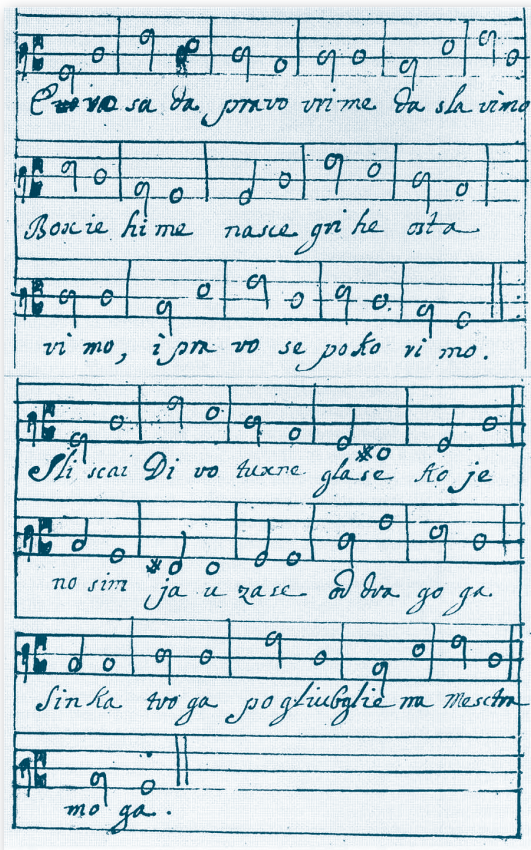 sa da pravo vrime da sla vimo
Boxie hi me nasce gri he osta
vi mo, i pra vo se poko ri mo.
Sli scai Di vo tuxne gla se ko je
no sim ja u za se od dra go ga
sinka tvo ga po gliubglie na Mesctra
mo ga.